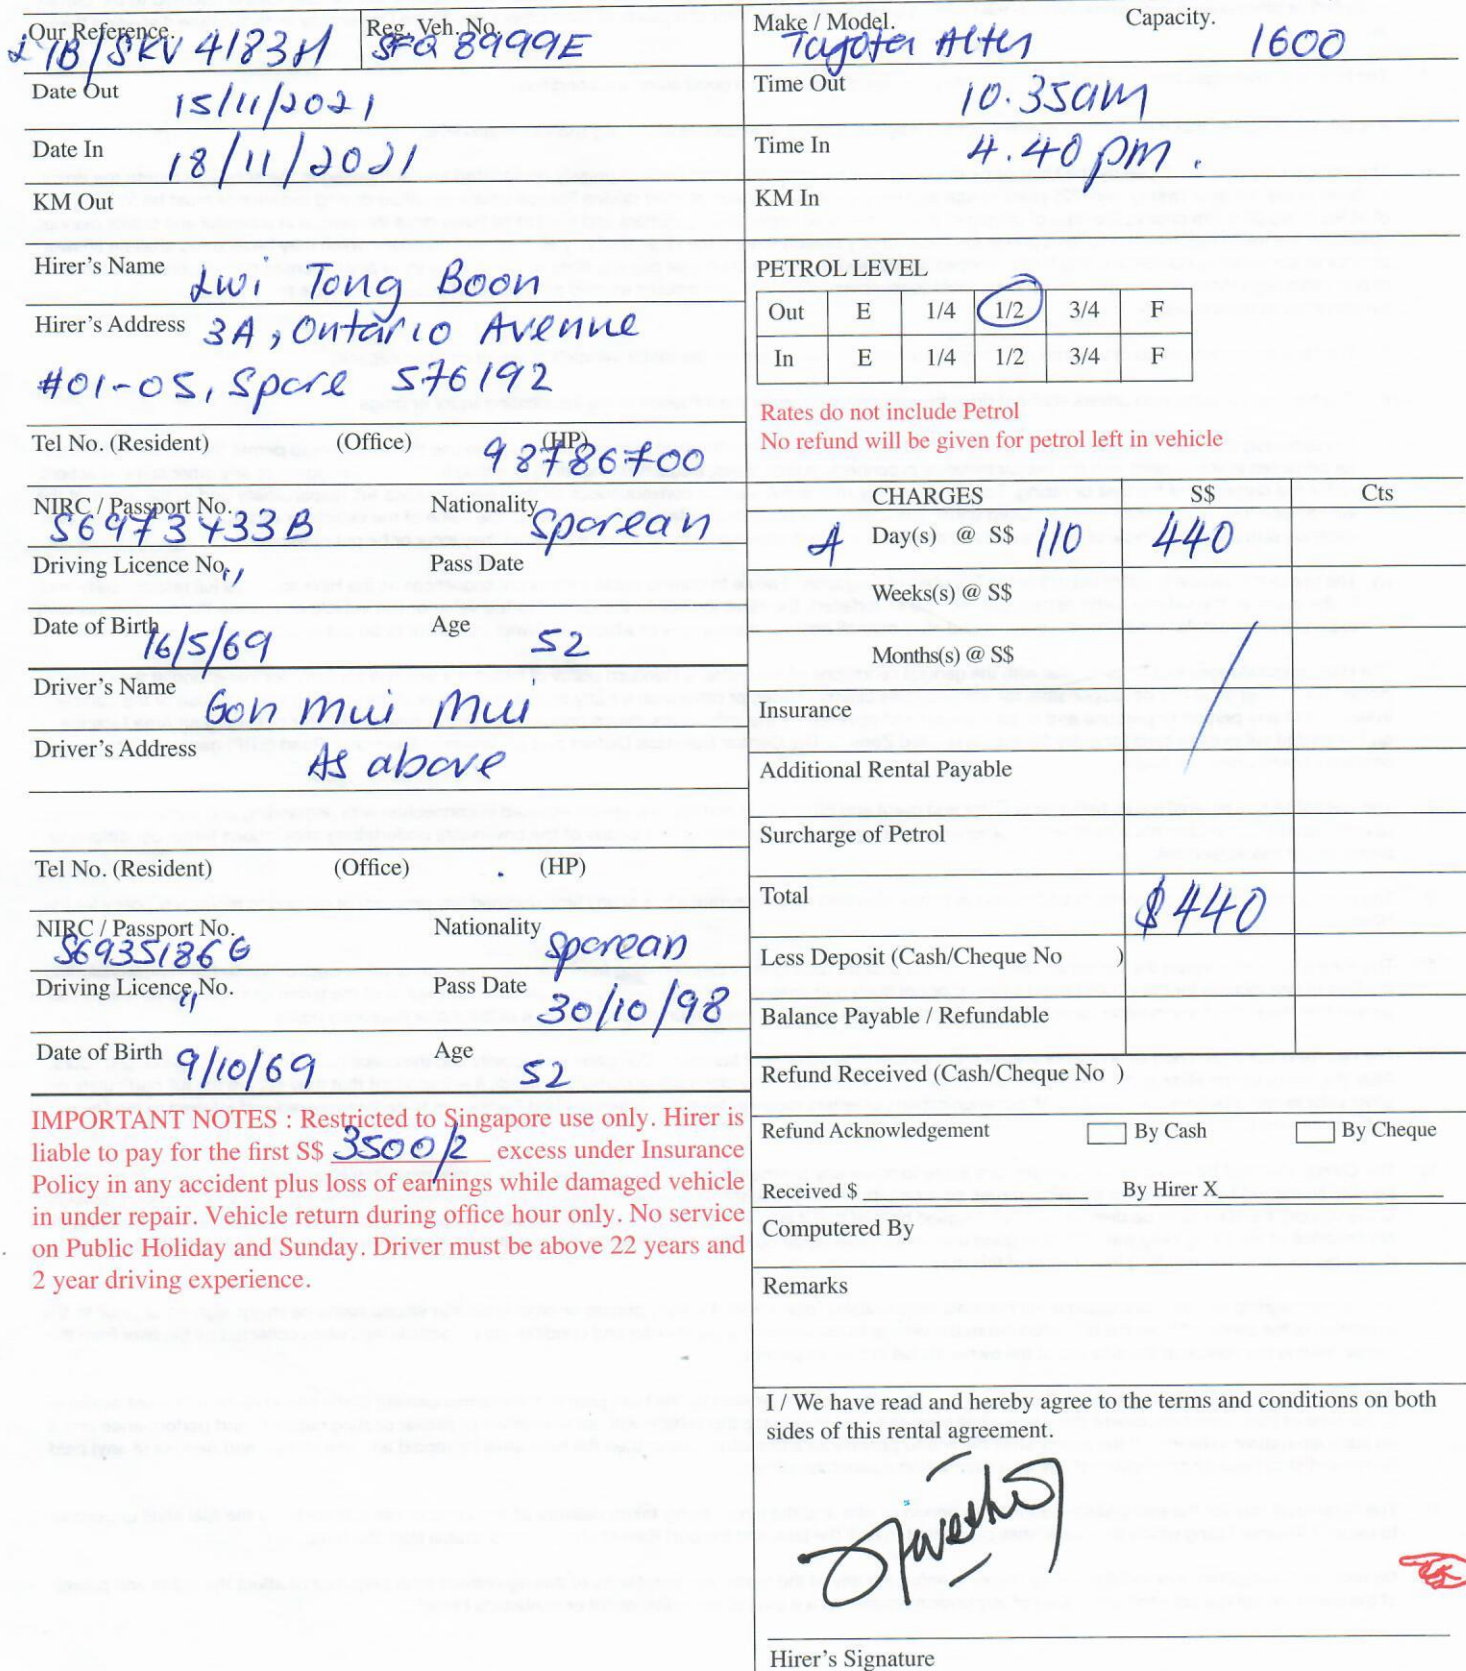 Our Reference.
LTB/SKV 4183H
Reg. Veh. No.
SFQ 8999E
Make / Model.
Toyota Altis
Capacity.
1600
Date Out
15/11/2021
Time Out
10.35am
Date In
18/11/2021
Time In
4.40 pm.
KM Out
KM In
Hirer's Name
Lwi Tong Boon
Hirer's Address
3A, Ontario Avenue
#01-05, Spore 576192
Tel No. (Resident) (Office) (HP)
98786700
NIRC / Passport No.
S6973433B
Nationality
Sporean
Driving Licence No.
"
Pass Date
Date of Birth
16/5/69
Age
52
Driver's Name
Goh Mui Mui
Driver's Address
As above
Tel No. (Resident) (Office) (HP)
NIRC / Passport No.
S6935186G
Nationality
Sporean
Driving Licence No.
"
Pass Date
30/10/98
Date of Birth
9/10/69
Age
52
IMPORTANT NOTES : Restricted to Singapore use only. Hirer is
liable to pay for the first S$ 3500/2 excess under Insurance
Policy in any accident plus loss of earnings while damaged vehicle
in under repair. Vehicle return during office hour only. No service
on Public Holiday and Sunday. Driver must be above 22 years and
2 year driving experience.
PETROL LEVEL
Out E 1/4 1/2 3/4 F
In E 1/4 1/2 3/4 F
Rates do not include Petrol
No refund will be given for petrol left in vehicle
CHARGES S$ Cts
4 Day(s) @ S$ 110 440
Weeks(s) @ S$
Months(s) @ S$
Insurance
Additional Rental Payable
Surcharge of Petrol
Total $440
Less Deposit (Cash/Cheque No )
Balance Payable / Refundable
Refund Received (Cash/Cheque No )
Refund Acknowledgement By Cash By Cheque
Received $ By Hirer X
Computered By
Remarks
I / We have read and hereby agree to the terms and conditions on both
sides of this rental agreement.
Hirer's Signature